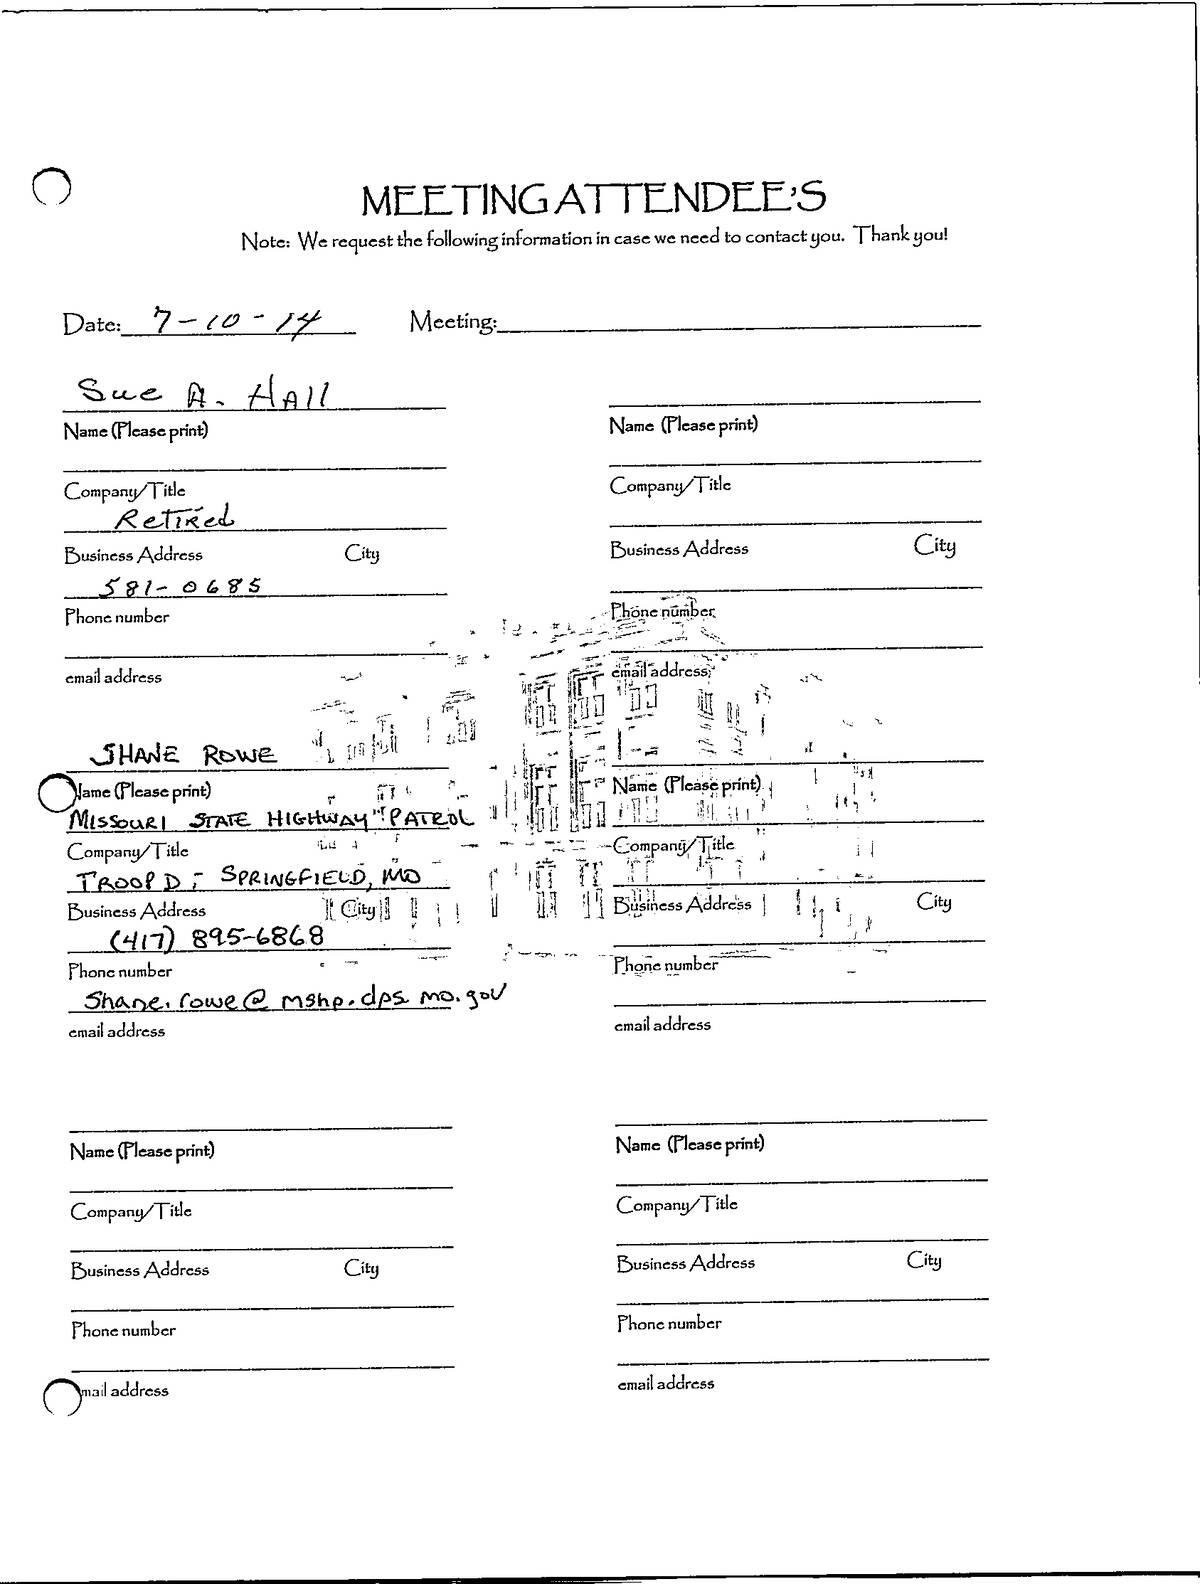 MEETING ATTENDEE'S
Note: We request the following information in case we need to contact you. Thank you!
Date: 7-10-14 Meeting:
Sue A. Hall
Name (Please print)
Company/Title
Retired
Business Address City
581-0685
Phone number
email address
Name (Please print)
Company/Title
Business Address City
Phone number
email address
SHANE ROWE
Name (Please print)
MISSOURI STATE HIGHWAY PATROL
Company/Title
TROOP D - SPRINGFIELD, MO
Business Address City
(417) 895-6868
Phone number
Shane.rowe@mshp.dps.mo.gov
email address
Name (Please print)
Company/Title
Business Address City
Phone number
email address
Name (Please print)
Company/Title
Business Address City
Phone number
mail address
Name (Please print)
Company/Title
Business Address City
Phone number
email address